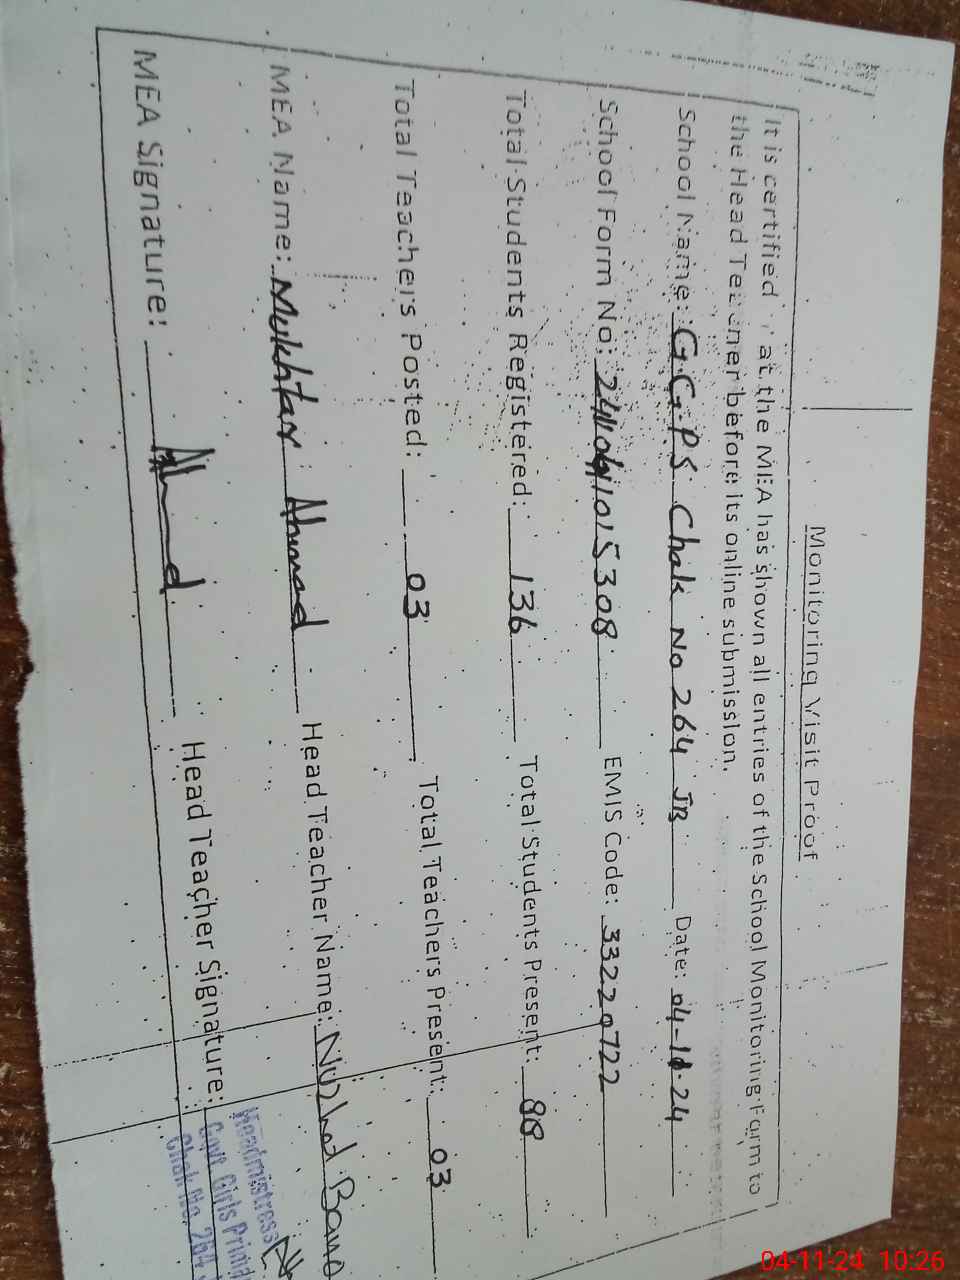 Monitoring Visit Proof
It is certified that the MEA has shown all entries of the School Monitoring Form to
the Head Teacher before its online submission.
School Name: G.G.P.S Chak No 264 JB Date: 04-11-24
School Form No: EMIS Code: 33220722
Total Students Registered: 136 Total Students Present: 88
Total Teachers Posted: 03 Total Teachers Present: 03
MEA Name: Mukhtar Ahmad Head Teacher Name: Nuzhat Bano
MEA Signature: Head Teacher Signature:
Headmistress
Govt. Girls Prima
Chak No. 264
04-11-24 10:26